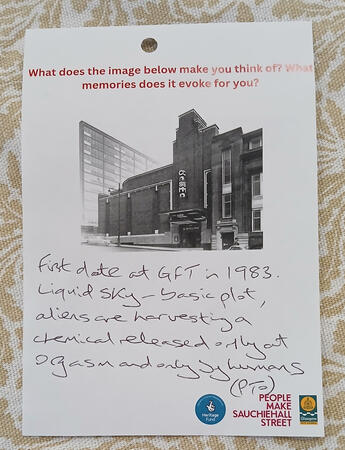 What does the image below make you think of? What
memories does it evoke for you?
First date at GFT in 1983.
Liquid Sky – basic plot,
aliens are harvesting a
chemical released only at
orgasm and only by humans
(PTO)
Heritage
Fund
PEOPLE
MAKE
SAUCHIEHALL
STREET